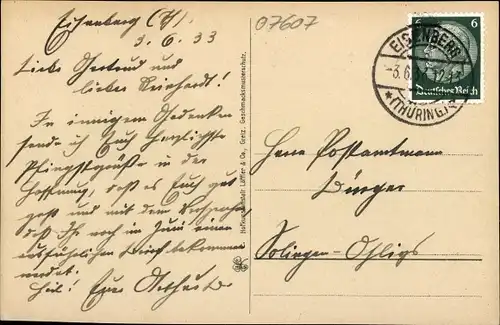 Eisenberg (Th)
3. 6. 33
Liebe Gertrud und
lieber Reinhardt!
In innigem Gedenken
sende ich Euch herzlichste
Pfingstgrüße in der
Hoffnung, daß es Euch gut
geht und mit dem Versprechen
daß Ihr noch im Juni einen
ausführlichen Brief bekommen
werdet.
Heil! Eure
07607
Hofkunstanstalt Löffler & Co., Greiz. Geschmacksmusterschutz.
6 6
Deutsches Reich
EISENBERG
-3.6.
*(THÜRING.)
Herrn Postamtmann
Bürger
Solingen-Ohligs